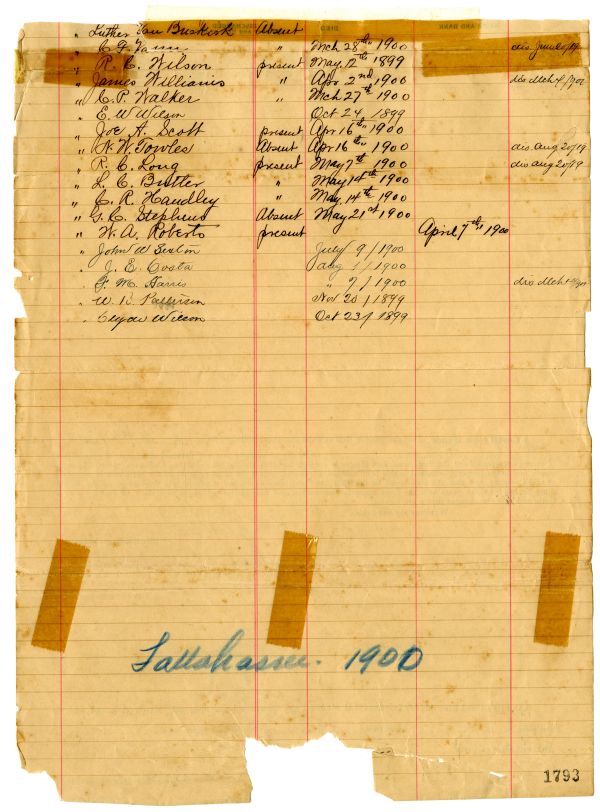 " Luther Van Buskirk Absent
" C. F. " Mch 28th 1900 dis
" R. C. Wilson present May 12th 1899
" James Williams " Apr 2nd 1900 dis Mch 4/1902
" C. P. Walker " Mch 27th 1900
" E. W Wilson Oct 24, 1899
" Joe A. Scott present Apr 16th 1900
" N. W. Towles Absent Apr 16th 1900 dis Aug 20/19
" R. C. Long present May 7th 1900 dis aug 20/19
" L. C. Butler " May 14th 1900
" C. R. Handley " May 14th 1900
" G. C. Stephens Absent May 21st 1900
" W. A. Roberts present April 7th 1900
" John W Sexton July 9/1900
" J. E. Costa aug 1/1900
" F. M. Harris " 7/1900 dis Mch
" W. D. Nov 20/1899
" Clyde Wilson Oct 23/1899
Tallahassee. 1900
1793